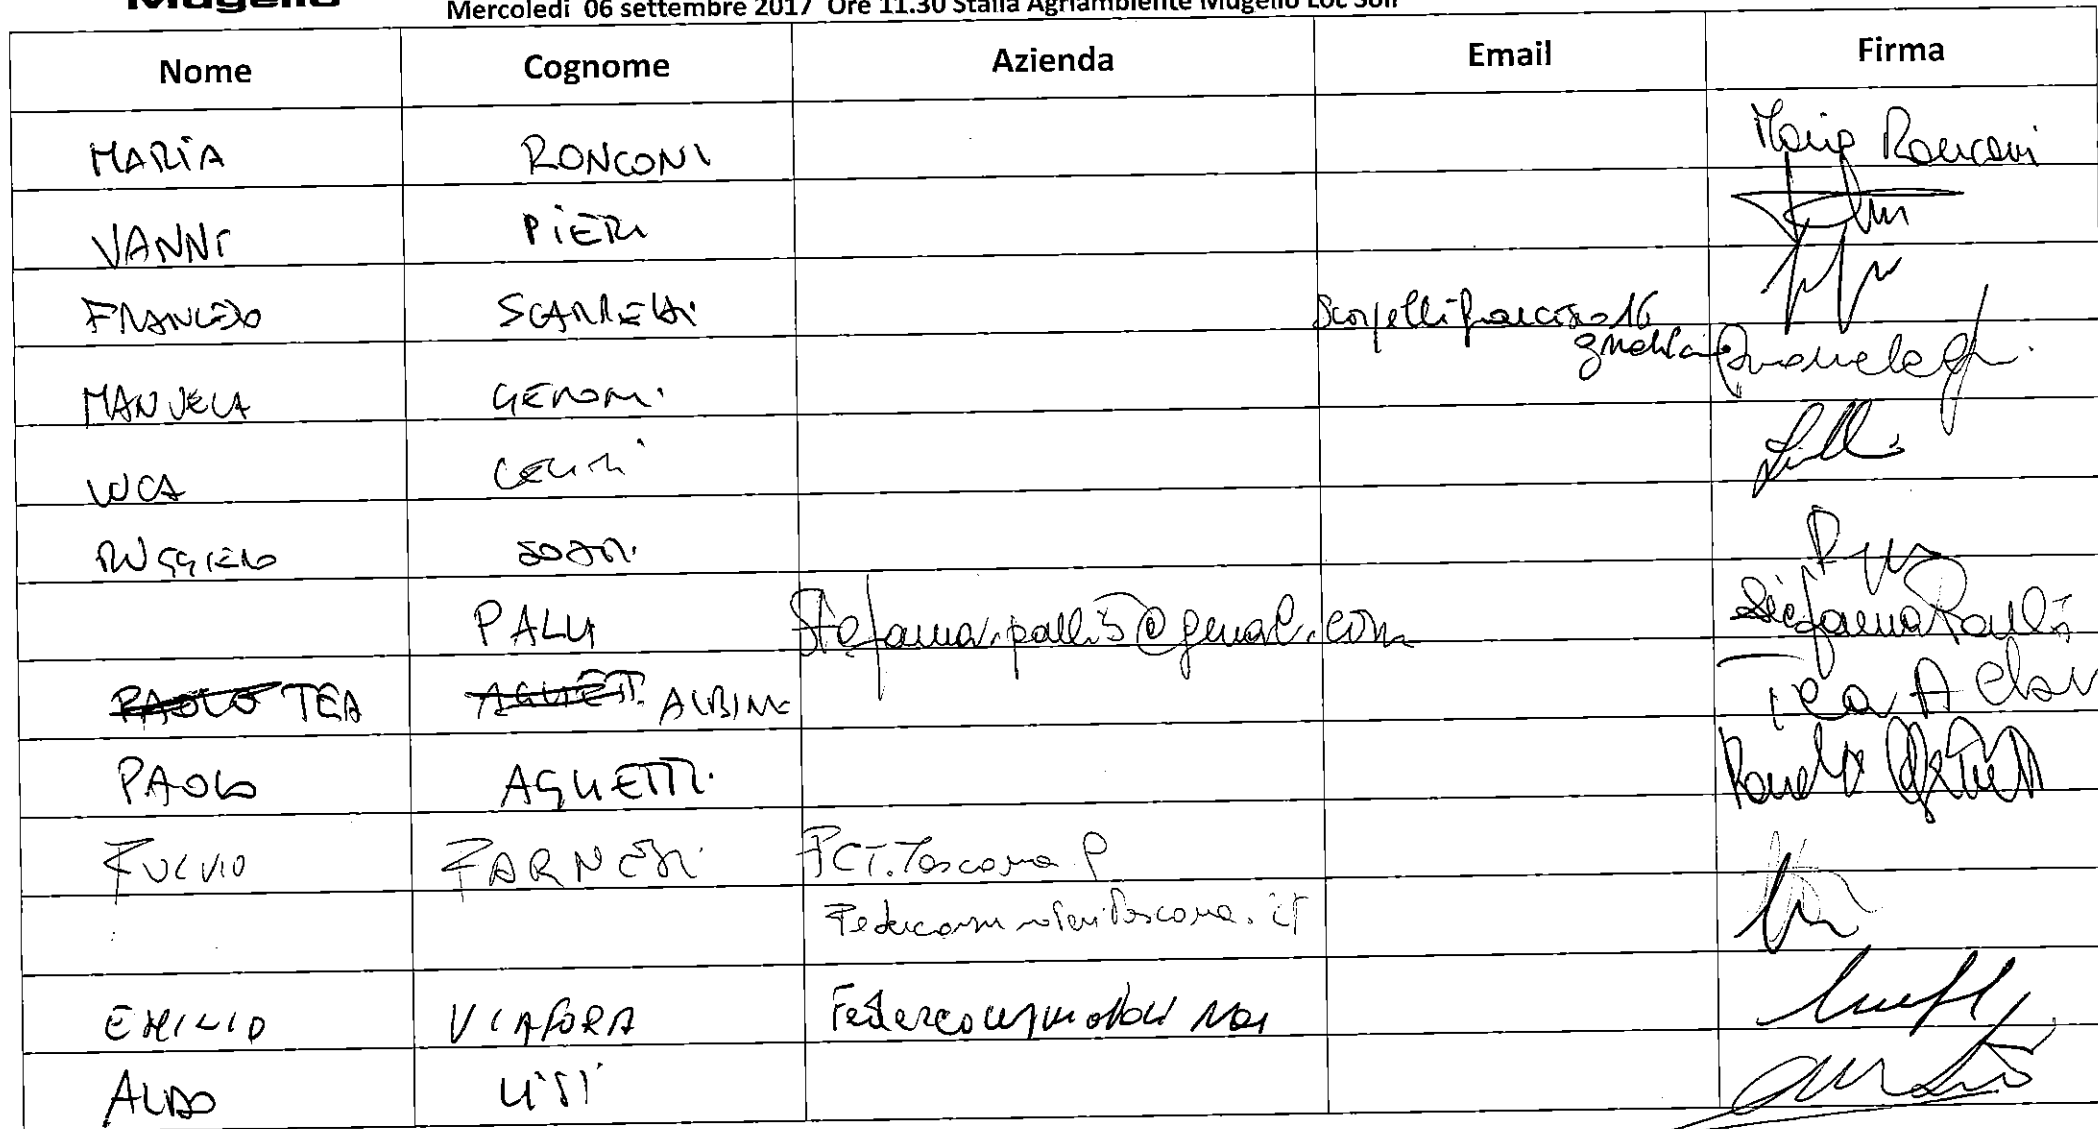 Mugello
Mercoledì 06 settembre 2017 Ore 11.30 Stalla Agriambiente Mugello Loc Soli
Nome Cognome Azienda Email Firma
MARIA RONCONI Maria Ronconi
VANNI PIERI
FRANCESCO SCARPELLI scarpellifrancesco16
gmail
MANUELA GERONI
LUCA CELLINI
RUGGIERO
PALLI stefania.palli5@gmail.com Stefania Palli
PAOLO TEA AGLIETTI ALBINI Tea Albini
PAOLO AGLIETTI
FULVIO FARNESI FCT.Toscana
Federconsumatori Toscana.it
EMILIO VIAFORA Federconsumatori Naz
ALDO LISI